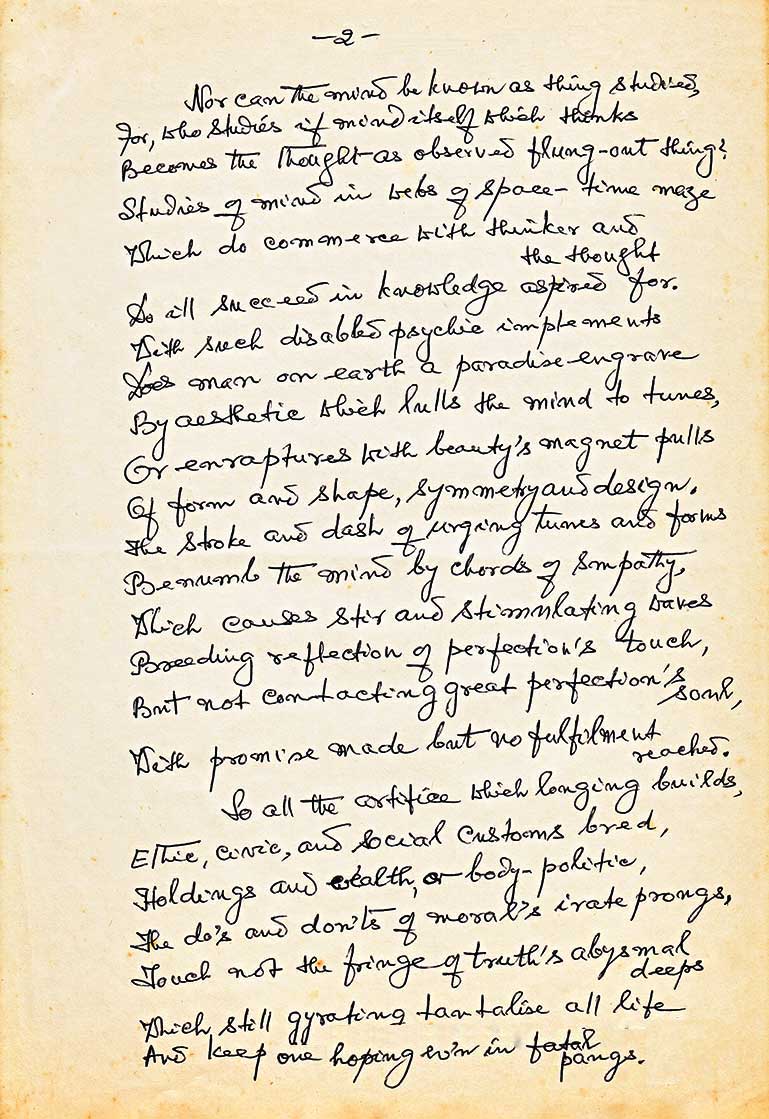 -2-
Nor can the mind be known as thing studied,
For, who studies if mind itself which thinks
Becomes the thought as observed flung-out thing?
Studies of mind in webs of space-time maze
Which do commerce with thinker and
the thought
Do ill succeed in knowledge aspired for.
With such disabled psychic implements
Does man on earth a paradise engrave
By aesthetic which lulls the mind to tunes,
Or enraptures with beauty's magnet pulls
Of form and shape, symmetry and design.
The stroke and dash of urging tunes and forms
Benumb the mind by chords of smpathy,
Which causes stir and stimulating waves
Breeding reflection of perfection's touch,
But not contacting great perfection's
soul,
With promise made but no fulfilment
reached.
So all the artifice which longing builds,
Ethic, civic, and social customs bred,
Holdings and wealth, or body-politic,
The do's and don'ts of moral's irate prongs,
Touch not the fringe of truth's abysmal
deeps
Which, still gyrating tantalise all life
And keep one hoping ev'n in fatal
pangs.